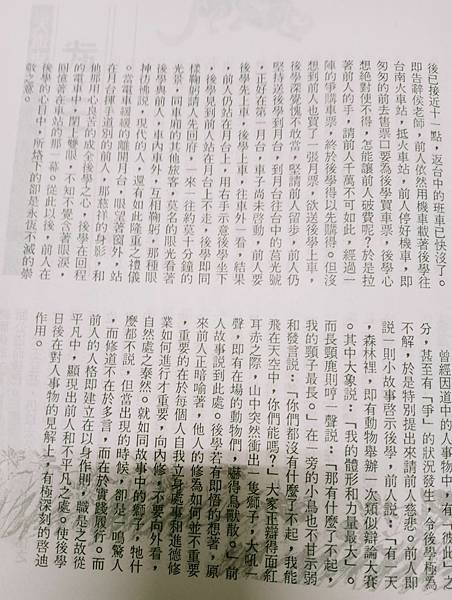 後已接近十一點，返台中的班車已快沒了。
即告辭侯老師，前人依然用機車載著後學往
台南火車站，抵火車站，前人停好機車，即
匆匆的前去售票口要為後學買車票，後學心
想絕對使不得，怎能讓前人破費呢？於是拉
著前人的手，請前人千萬不可如此，經過一
陣的爭購車票，終於後學得以先購得。但沒
想到前人也買了一張月票，欲送後學上車，
後學深覺愧不敢當，堅請前人留步，前人仍
堅持送後學到月台，到月台往台中的莒光號
，正好在第一月台，車子尚未啓動，前人要
後學先上車，後學上車，往車外一看，結果
，前人仍站在月台上，用右手示意後學坐下
，後學見到前人站在月台上不走，後學即同
樣鞠躬請前人先回府，一來一往約莫十分鐘的
光景，同車廂的其他旅客，莫名的眼光看著
後學與前人，車內車外，互相鞠躬，那種眼
神彷彿説，現代的人，還有如此隆重之禮儀
。當電車緩緩的離開月台，眼望著窗外，站
在月台揮手道別的前人，那慈祥的身影，和
他那用心良苦的成全後學之心，後學在回程
的電車中，閉上雙眼，不知不覺含著眼淚，
回憶著在車站的那一幕。從此以後，前人在
後學的心目中，所烙下的卻是永恆不滅的崇
敬之意。
曾經因道中的人事物中，有「彼此」之
分，甚至有「爭」的狀況發生，令後學極為
不解，於是特別提出來請前人慈悲。前人即
説一則小故事啓示後學，前人説：「有一天
，森林裡，即有動物舉辦一次類似辯論大賽
。其中大象説：「我的體形和力量最大」。
而長頸鹿則哼一聲説：「那有什麼了不起，
我的頸子最長。」在一旁的小鳥也不甘示弱
和發言説：「你們都沒有什麼了不起，我能
飛在天空中，你們能嗎？」大家正辯得面紅
耳赤之際，山中突然衝出一隻獅子，大吼一
聲，即有在場的動物們，嚇得鳥獸散。」前
人故事説到此處。後學若有即悟的想著，原
來前人正暗喻著，他人的修為如何並不重要
，重要的在於每個人自我立身處事和進德修
業如何進行才重要，向內修，不要向外看，
自然處之泰然。就如同故事中的獅子，牠什
麼都不説，但當出現的時候，卻是一鳴驚人
，而修道不在於多言，而在於實踐履行。而
前人的人格即建立在以身作則，職是之故從
平凡中，顯現出前人和不平凡之處。使後學
日後在對人事物的見解上，有極深刻的啓迪
作用。